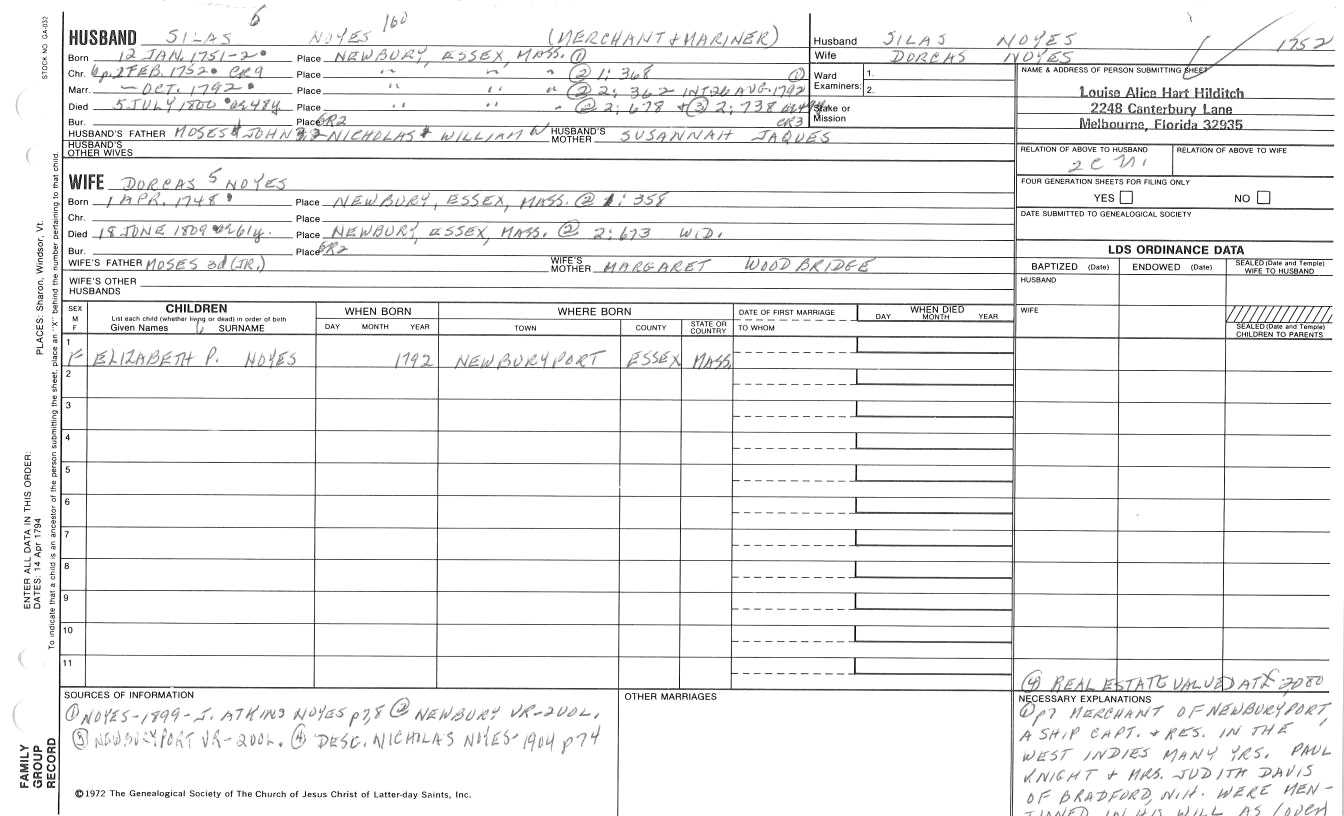 6 160
HUSBAND SILAS NOYES (MERCHANT & MARINER)
Born 12 JAN. 1751-2 Place NEWBURY, ESSEX, MASS. ①
Chr. 2 FEB. 1752 CR9 Place " " " ② 1:368 ①
Marr. — OCT. 1792 Place " " " ② 2:362 INT. 26 AUG. 1792
Died 5 JULY 1800 ae 48y Place " " " ② 2:678 + ③ 2:738
Bur. Place GR2 CR3
HUSBAND'S FATHER MOSES JOHN NICHOLAS WILLIAM HUSBAND'S MOTHER SUSANNAH JAQUES
HUSBAND'S OTHER WIVES
WIFE DORCAS 5 NOYES
Born 1 APR. 1748 Place NEWBURY, ESSEX, MASS. ② 1:358
Chr. Place
Died 18 JUNE 1809 ae 61y. Place NEWBURY, ESSEX, MASS. ② 2:673 WID.
Bur. Place GR2
WIFE'S FATHER MOSES 3d (JR.) WIFE'S MOTHER MARGARET WOODBRIDGE
WIFE'S OTHER HUSBANDS
Husband SILAS NOYES 1752
Wife DORCAS NOYES
Ward Examiners: 1. 2.
Stake or Mission
NAME & ADDRESS OF PERSON SUBMITTING SHEET
Louise Alice Hart Hilditch
2248 Canterbury Lane
Melbourne, Florida 32935
RELATION OF ABOVE TO HUSBAND RELATION OF ABOVE TO WIFE
2C
FOUR GENERATION SHEETS FOR FILING ONLY
YES NO
DATE SUBMITTED TO GENEALOGICAL SOCIETY
LDS ORDINANCE DATA
BAPTIZED (Date) ENDOWED (Date) SEALED (Date and Temple) WIFE TO HUSBAND
HUSBAND
WIFE
SEALED (Date and Temple) CHILDREN TO PARENTS
SEX M F
CHILDREN
List each child (whether living or dead) in order of birth
Given Names SURNAME
WHEN BORN
DAY MONTH YEAR
WHERE BORN
TOWN COUNTY STATE OR COUNTRY
DATE OF FIRST MARRIAGE
TO WHOM
WHEN DIED
DAY MONTH YEAR
1 F ELIZABETH P. NOYES 1792 NEWBURYPORT ESSEX MASS.
2
3
4
5
6
7
8
9
10
11
SOURCES OF INFORMATION
① NOYES-1899-J. ATKINS NOYES p7,8 ② NEWBURY VR-2VOL.
③ NEWBURYPORT VR-2VOL. ④ DESC. NICHOLAS NOYES-1904 p74
©1972 The Genealogical Society of The Church of Jesus Christ of Latter-day Saints, Inc.
OTHER MARRIAGES
④ REAL ESTATE VALUED AT £ 2080
NECESSARY EXPLANATIONS
① p7 MERCHANT OF NEWBURYPORT,
A SHIP CAPT. & RES. IN THE
WEST INDIES MANY YRS. PAUL
KNIGHT & MRS. JUDITH DAVIS
OF BRADFORD, N.H. WERE MEN-
TIONED IN HIS WILL AS (over
STOCK NO. GA-032
PLACES: Sharon, Windsor, Vt.
ENTER ALL DATA IN THIS ORDER:
DATES: 14 Apr 1794
To indicate that a child is an ancestor of the person submitting the sheet, place an "X" behind the number pertaining to that child.
FAMILY
GROUP
RECORD